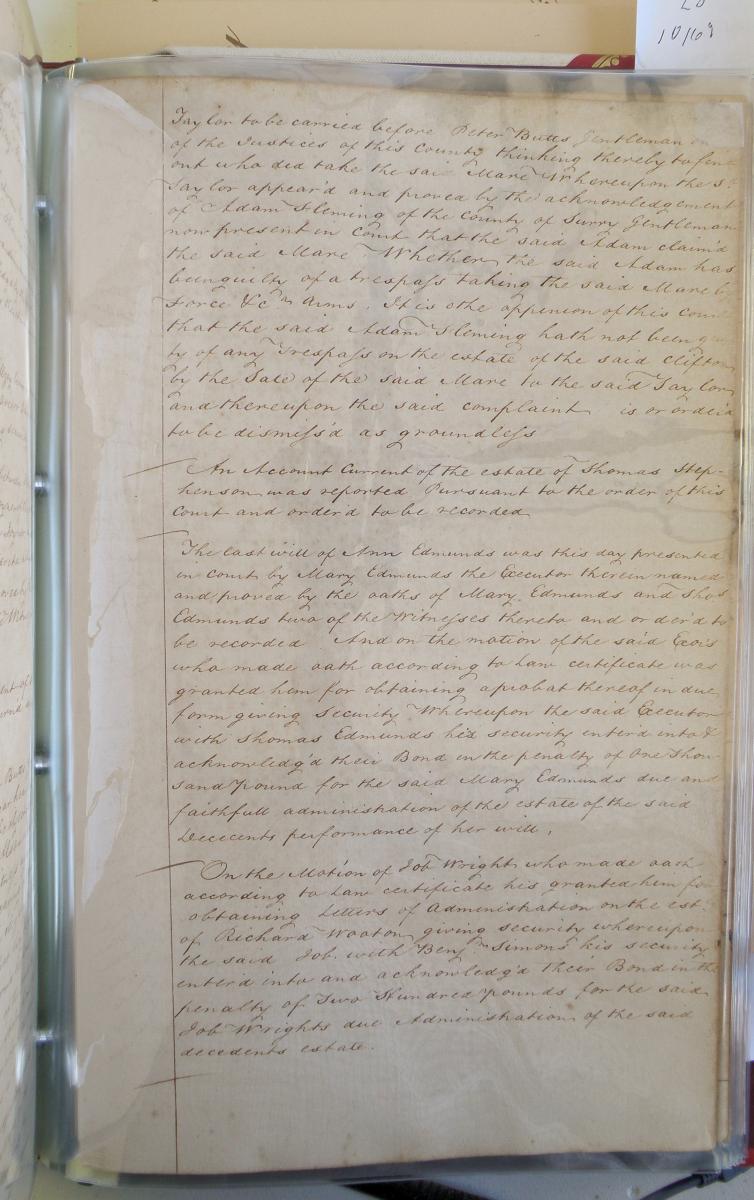 10/69
Taylor to be carried before Peter Butts Gentleman on
of the Justices of this County thinking thereby to
out who did take the said Mare Whereupon the sd
Taylor appear'd and proved by the acknowledgement
of Adam Fleming of the County of Surry Gentleman
now present in Court that the said Adam claim'd
the said Mare Whether the said Adam has
been guilty of a trespass taking the said Mare
Force &c Arms. It is othe oppinion of this Court
that the said Adam Fleming hath not been
ty of any Trespass on the estate of the said Clifton
by the Sale of the said Mare to the said Taylor
and thereupon the said complaint is or order'd
to be dismiss'd as groundless
An Account Current of the estate of Thomas Step-
henson was reported Pursuant to the order of this
Court and order'd to be recorded
The last will of Ann Edmunds was this day presented
in Court by Mary Edmunds the Executor therein named
and proved by the oaths of Mary Edmunds and Thos
Edmunds two of the Witnesses thereto and order'd to
be recorded And on the motion of the said Exois
who made oath according to Law certificate was
granted him for obtaining a probat thereof in due
form giving Security Whereupon the said Executor
with Thomas Edmunds his security enter'd into &
acknowledg'd their Bond in the penalty of One Thou-
sand pound for the said Mary Edmunds due and
faithfull administration of the estate of the said
Dececents performance of her will,
On the Motion of Job Wright who made oath
according to Law certificate his granted him for
obtaining Letters of Administration on the est
of Richard Wooton giving security whereupon
the said Job with Benjn Simons his security
enter'd into and acknowledg'd their Bond in the
penalty of Two Hundred pounds for the said
Job Wrights due Administration of the said
decedents estate.